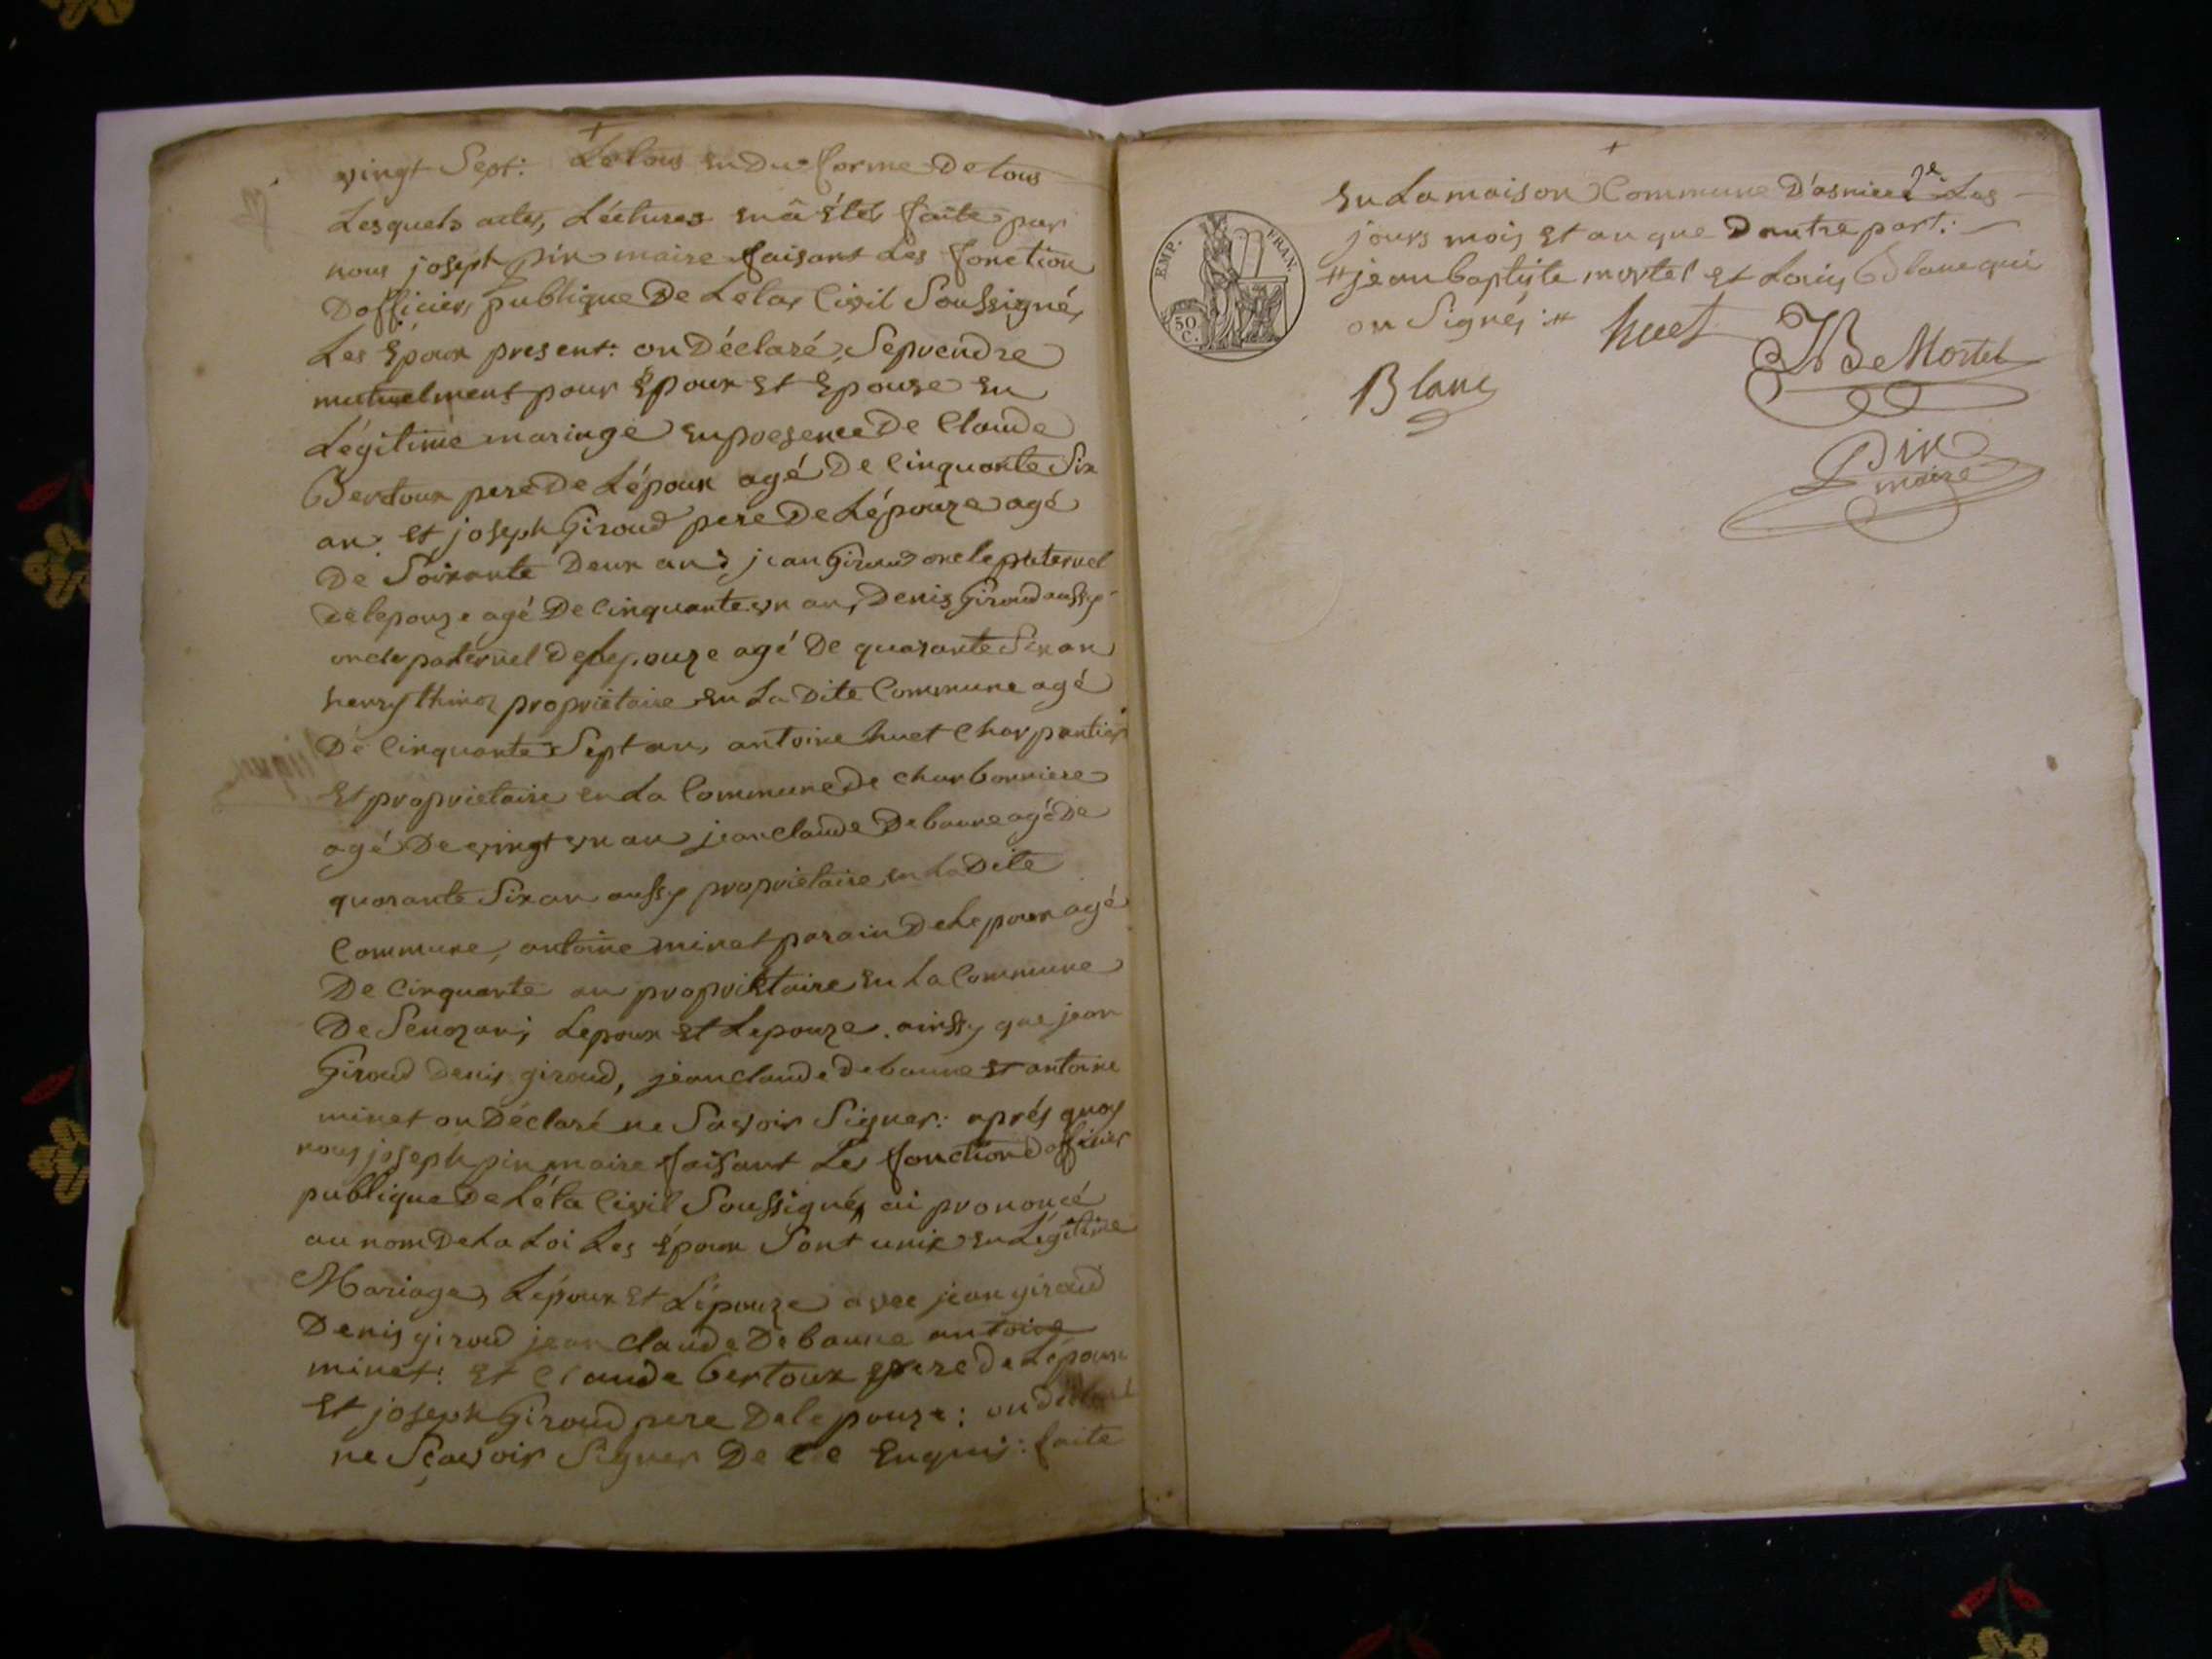 vingt Sept: Le tous en Du forme De tous
Lesquels actes, Léctures en â Étés faite par
nous joseph pin maire faisant Les fonction
D officier, publique De Letat Civil Soussigné,
Les Époux present: on Déclaré, Seprendre
mutuelment pour Époux Et Épouze en
Légitime mariage en presence De Claude
Bertoux pere De Lépoux agé De Cinquante Six
an. et joseph Giroud pere De Lépouze agé
De Soixante Deux ans jean Giroud oncle paternel
De lepouze agé De Cinquante un an, Denis Giroud aussy
oncle paternel De Lepouze agé De quarante Six an
henry propriétaire en La Dite Commune agé
De Cinquante Sept an, antoine huet Charpantier
Et proprietaire en La Commune De charbonniere
agé De vingt un an jean claude Debaune agé De
quarante Six an aussy proprietaire en La Dite
Commune, antoine minet parain De Lepoux agé
De Cinquante an propriétaire en La Commune
De Senozan; Lepoux et Lepouze. ainssy que jean
Giroud Denis giroud, jean claude debaune et antoine
minet on Déclaré ne Savoir Signer: aprés quoy
nous joseph pin maire faisant Les fonction d officier
publique De L'éta Civil Soussigné, ai prononcé
au nom De La Loi Les Époux Sont unix en Légitime
Mariage, Lépoux et Lépouze avec jean giraud
Denis giroud jean claude Debaune antoine
minet: et Claude bertoux pere de Lepoux
Et joseph Giroud pere De le pouze: on déclaré
ne Sçavoir Signer De ce Enquis: faite
En La maison Commune D'asniere Les
jours mois et an que D autre part:
# jean baptiste mortel et Louis Blanc qui
on Signés: #
EMP. FRAN.
50 C.
huet
JB Mortel
Blanc
Pin
maire